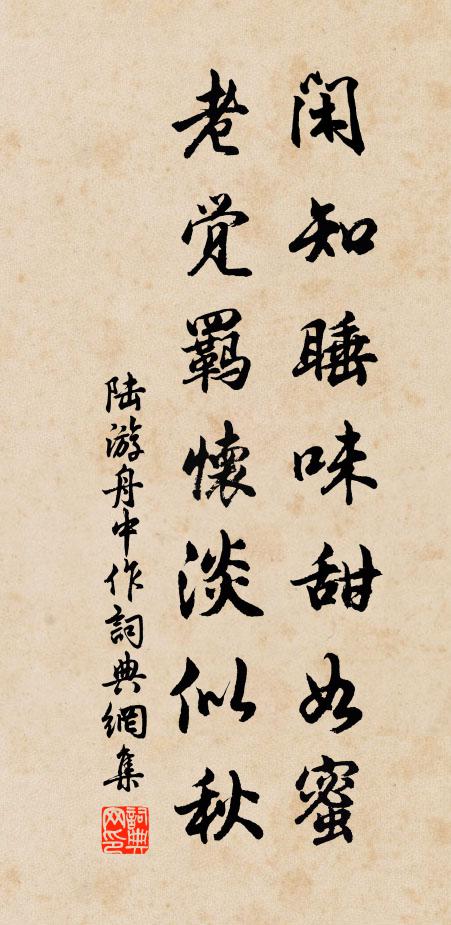 闲知睡味甜如蜜
老觉羁懷淡似秋
陆游舟中作詞典網集
詞典网印